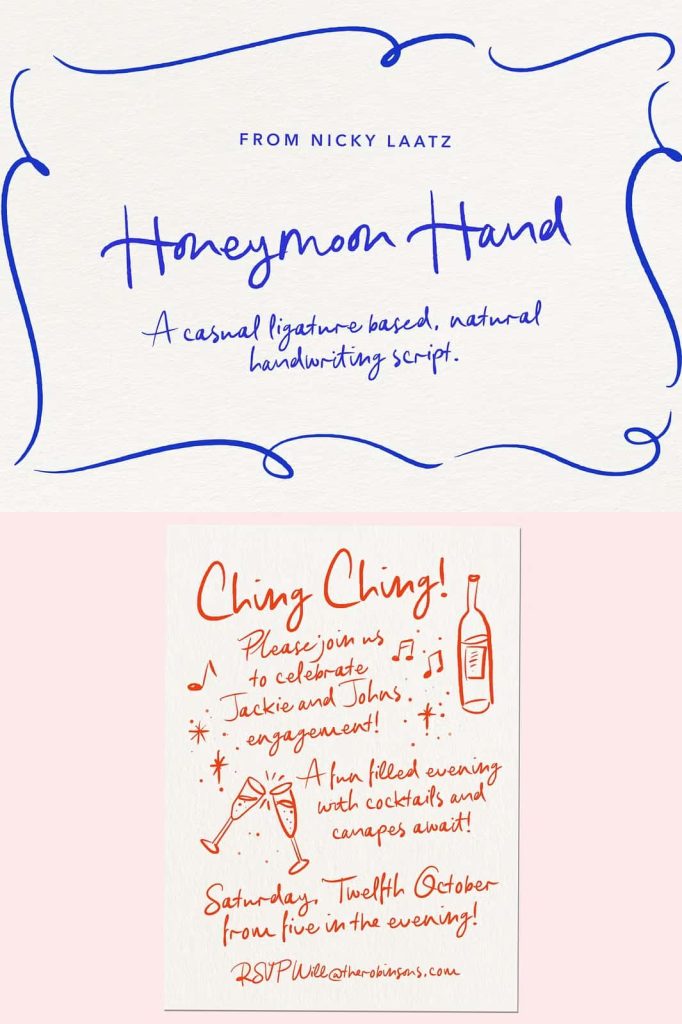 FROM NICKY LAATZ
Honeymoon Hand
A casual ligature based, natural
handwriting script.
Ching Ching!
Please join us
to celebrate
Jackie and Johns
engagement!
A fun filled evening
with cocktails and
canapes await!
Saturday, Twelfth October
from five in the evening!
RSVP Will@therobinsons.com